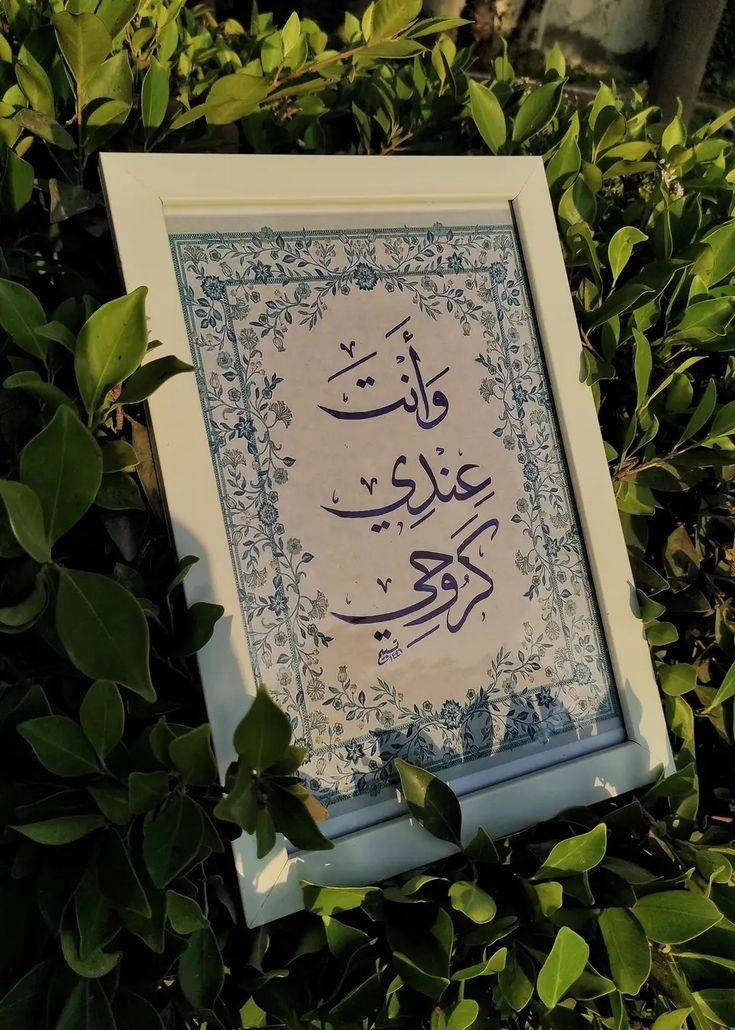 وَأَنْتَ
عِنْدِي
كَرُوحِي